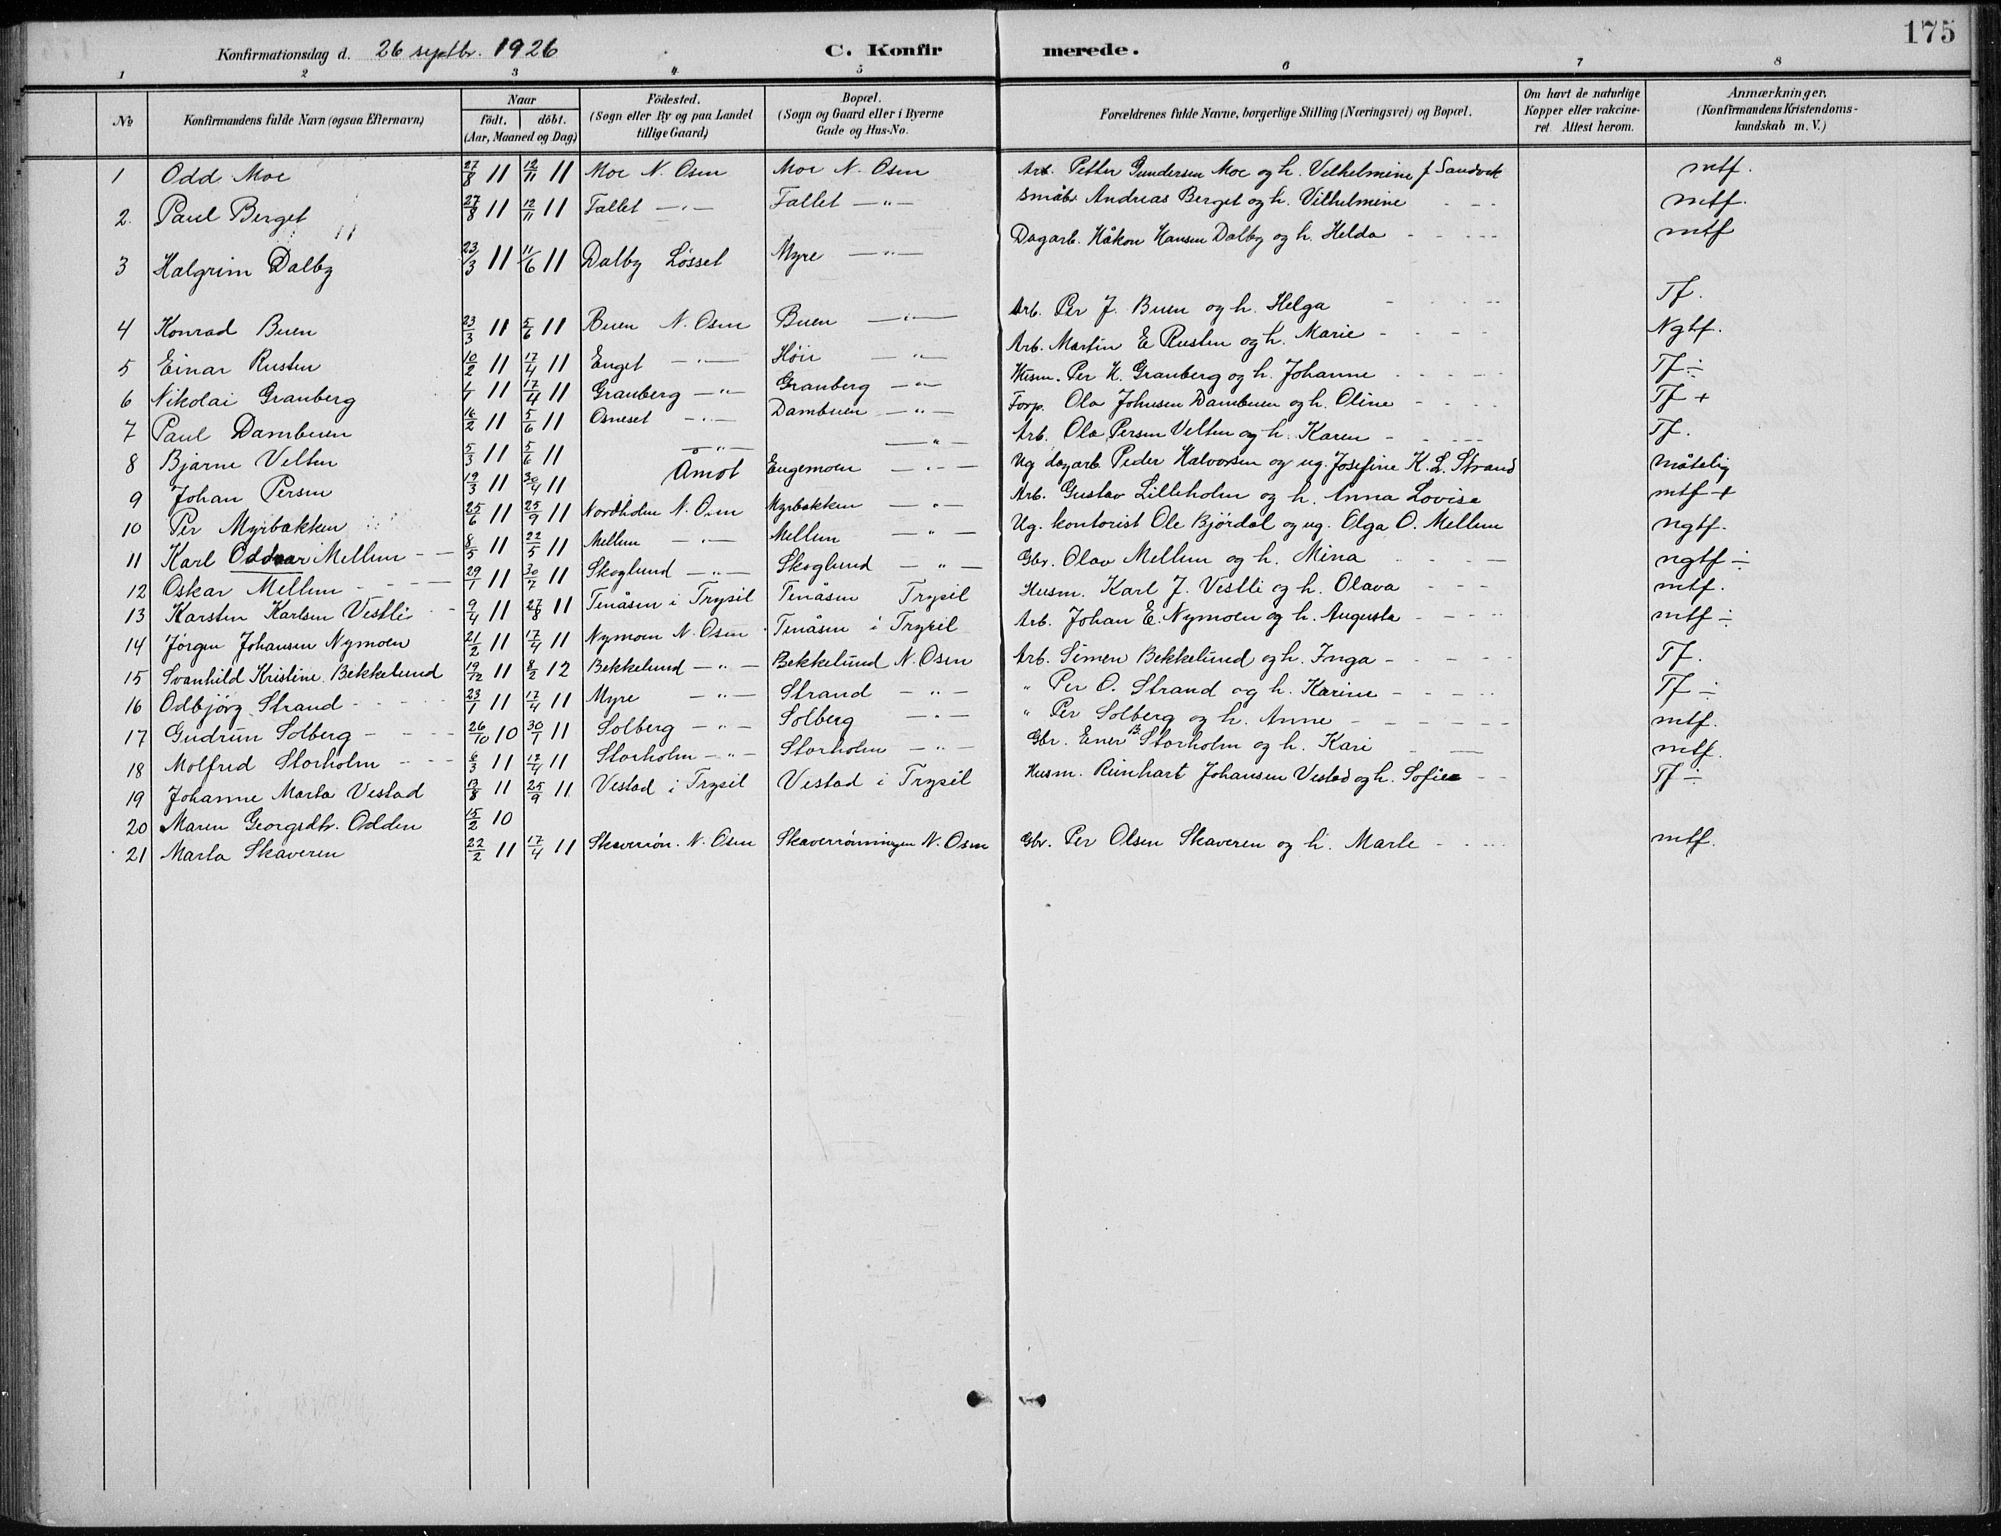 175
Konfirmationsdag d. 26 septbr. 1926 C. Konfirmerede.
1 2 3 4 5 6 7 8
№ Konfirmandens fulde Navn (ogsaa Efternavn) Naar Födt. döbt. (Aar, Maaned og Dag) Födested. (Sogn eller By og paa Landet tillige Gaard) Bopæl. (Sogn og Gaard eller i Byerne Gade og Hus-No. Forældrenes fulde Navne, borgerlige Stilling (Næringsvei) og Bopæl. Om havt de naturlige Kopper eller vakcineret. Attest herom. Anmærkninger. (Konfirmandens Kristendomskundskab m. V.)
1 Odd Moe 27/8 11 12/11 11 Moe N. Osen Moe N. Osen Arb. Petter Gundersen Moe og h. Vilhelmine f Sandvik mtf.
2. Paul Berget 27/8 11 12/11 11 Fallet —"— Fallet —"— Småbr Andreas Berget og h. Vilhelmine - - - mtf.
3 Halgrim Dalby 23/3 11 11/6 11 Dalby Løsset Myre —"— Dagarb. Håkon Hansen Dalby og h. Helda - - - - mtf
4 Konrad Buen 23/3 11 5/6 11 Buen N. Osen Buen —"— Arb. Per J. Buen og h. Helga - - - - Tf.
5 Einar Rusten 10/2 11 17/4 11 Enget —"— Höie —"— Arb. Martin E Rusten og h. Marie - - - - Ngtf.
6 Nikolai Granberg 11 17/4 11 Granberg —"— Granberg —"— Husm. Per K. Granberg og h. Johanne - - - - - Tf ÷
7 Paul Dambuen 16/2 11 5/6 11 Osneset —"— Dambuen —"— Forp. Ola Johnsen Dambuen og h. Oline - - - - Tf +
8 Bjarne Velten 5/3 11 5/6 11 —"— —"— Arb. Ola Persen Velten og h. Karen - - - - - Tf.
9 Johan Persen 19/3 11 30/4 11 Åmot Engemoen —"— Ug dagarb. Peder Halvorsen og ug. Josefine K. L. Strand måtelig
10 Per Myrbakken 25/6 11 25/9 11 Nordholm N. Osen Myrbakken —"— Arb. Gustav Lilleholm og h. Anna Lovise mtf +
11 Karl Oddvar Mellem - - 8/5 11 22/5 11 Mellem —"— Mellem —"— Ug. kontorist Ole Björdal og ug. Olga O. Mellem ngtf.
12 Oskar Mellem - - - - 29/1 11 30/7 11 Skoglund —"— Skoglund —"— Gbr. Olav Mellem og h. Mina - - - - ngtf ÷
13 Karsten Karlsen Vestli - - 9/4 11 27/8 11 Tenåsen i Trysil Tenåsen Trysil Husm. Karl J. Vestli og h. Olava - - - mtf.
14 Jörgen Johansen Nymoen 21/2 11 17/4 11 Nymoen N. Osen Tenåsen i Trysil Arb. Johan E. Nymoen og h. Augusta - - - - mtf ÷
15 Svanhild Kristine Bekkelund 19/12 11 8/2 12 Bekkelund —"— Bekkelund N. Osen Arb. Simen Bekkelund og h. Inga - - - - - Tf.
16 Odbjörg Strand - - - - - 23/1 11 17/4 11 Myre —"— Strand —"— " Per O. Strand og h. Karine - - - - - Tf ÷
17 Gudrun Solberg - - - - 26/10 10 30/1 11 Solberg —"— Solberg —"— " Per Solberg og h. Anne - - - - - mtf.
18 Molfrid Storholm - - - 6/3 11 17/4 11 Storholm —"— Storholm —"— Gbr. Ener B Storholm og h. Kari - — mtf.
19 Johanne Marta Vestad 13/8 11 25/9 11 Vestad i Trysil Vestad i Trysil Husm. Reinhart Johansen Vestad og h. Sofie - - Tf ÷
20 Maren Georgsdtr. Odden 15/2 10
21 Marta Skaveren 22/2 11 17/4 11 Skaverrön. N. Osen Skaverrönningen N. Osen Gbr. Per Olsen Skaveren og h. Marte - - - - mtf.